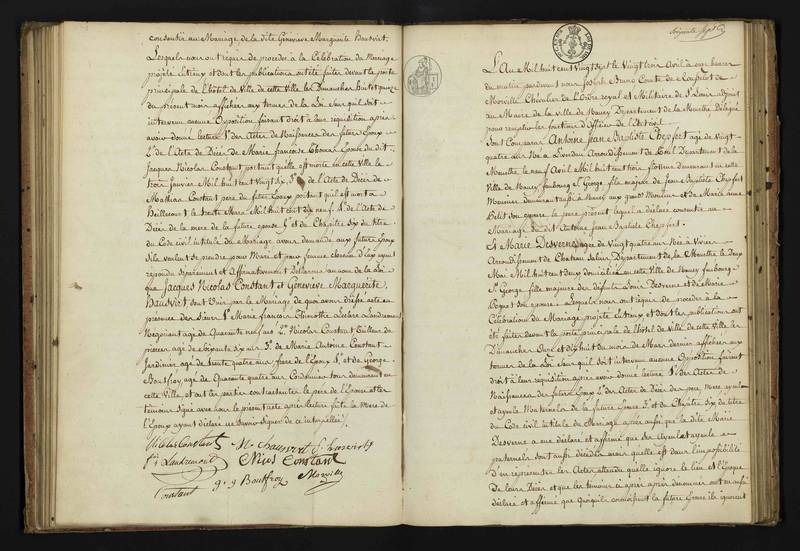 consentir au Mariage de la dite Geneviève Marguerite Hausvirt.
Lesquels nous ont requis de procéder à la Célébration du Mariage
projeté entr'eux et dont les publications ont été faites devant la porte
principale de l'hôtel de Ville de cette Ville les Dimanches huit et quinze
du présent mois afficher aux termes de la Loi sans qu'il soit
intervenu aucune Opposition faisant droit à leur requisition après
avoir donné lecture 1° des Actes de Naissances des futurs Epoux
2° de l'Acte de Décès de Marie françoise Thomas Epouse du dit
Jacques Nicolas Constant portant quelle est morte en cette Ville le
trois Janvier Mil huit cent vingt six, 3° de l'Acte de Décès de
Mathias Constant pere du futur Epoux portant qu'il est mort à
le trente Mars Mil huit cent dix neuf 4° de l'acte de
Décès de la mere de la future épouse 5° et du Chapitre six du titre
du Code civil intitulé du Mariage avons demandé aux futurs Epoux
s'ils veulent se prendre pour Mari et pour femme chacun d'eux ayant
répondu séparément et affirmativement Déclarons au nom de la Loi
que Jacques Nicolas Constant et Geneviève Marguerite
Hausvirt sont Unis par le Mariage de quoi avons dressé acte en
présence des Sieurs 1° Marie françois Thimothée Leclerc Landremont
Négociant agé de Quarante neuf ans 2° Nicolas Constant Tailleur de
pierres agé de soixante six ans 3° de Marie Antoine Constant
Jardinier agé de trente quatre ans frere de l'Epoux 4° et de George
Boutfroy agé de Quarante quatre ans Cordonnier tous demeurant en
cette Ville et ont les parties contractantes le pere de l'Epouse et les
témoins signé avec nous le présent acte après lecture faite la Mere de
l'Epoux ayant déclaré ne savoir signer de ce interpellée.
Nicolas Constant M Hausvirt J Hausvirt
Landremont Nicos Constant
Constant g. g Boutfroy Morville
Soixante Sept
L'An Mil huit cent Vingt sept le Vingt trois Avril à onze heures
du matin pardevant nous Joseph Bruno Comte de
Morville Chevalier de l'Ordre royal et Militaire de St Louis adjoint
au Maire de la Ville de Nancy Département de la Meurthe, Délégué
pour remplir les fonctions d'Officier de l'Etat civil
Sont Comparus Antoine Jean Baptiste Chepfert agé de Vingt
quatre ans Né à Arrondissement de Toul Département de la
Meurthe le neuf Avril Mil huit cent trois demeurant en cette
Ville de Nancy faubourg St George fils majeur de Jean Baptiste Chepfert
Meunier demeurant aussi à Nancy aux grands Moulins et de Marie Anne
son épouse le pere présent lequel a déclaré consentir au
Mariage du dit Antoine Jean Baptiste Chepfert.
Et Marie Desverne agée de Vingt quatre ans Née à Viviers
Arrondissement de Chateau Salins Département de la Meurthe le Deux
Mai Mil huit cent deux domiciliée en cette Ville de Nancy faubourg
St George fille majeure de défunts Louis Desverne et de Marie
son épouse. Lesquels nous ont requis de procéder à la
Célébration du Mariage projeté entr'eux et dont les publications ont
été faites devant la porte principale de l'hôtel de Ville de cette Ville les
Dimanches Onze et dix huit du mois de Mars dernier afficher aux
termes de la Loi sans qu'il soit intervenu aucune Opposition faisant
droit à leur requisition après avoir donné lecture 1° des Actes de
Naissances des futurs Epoux 2° des Actes de Décès des pere, mere ayeule
et ayeule Maternels de la future Epouse 3° et du Chapitre Six du titre
du Code civil intitulé du Mariage après aussi que la dite Marie
Desverne a eu déclaré et affirmé que ses Ayeul et ayeule
paternels sont aussi décédés mais quelle est dans l'impossibilité
d'en représenter les Actes attendu quelle ignore le lieu et l'époque
de leurs Décès et que les témoins ci après dénommés ont aussi
déclaré et affirmé que quoiqu'ils connoissent la future Epouse ils ignorent